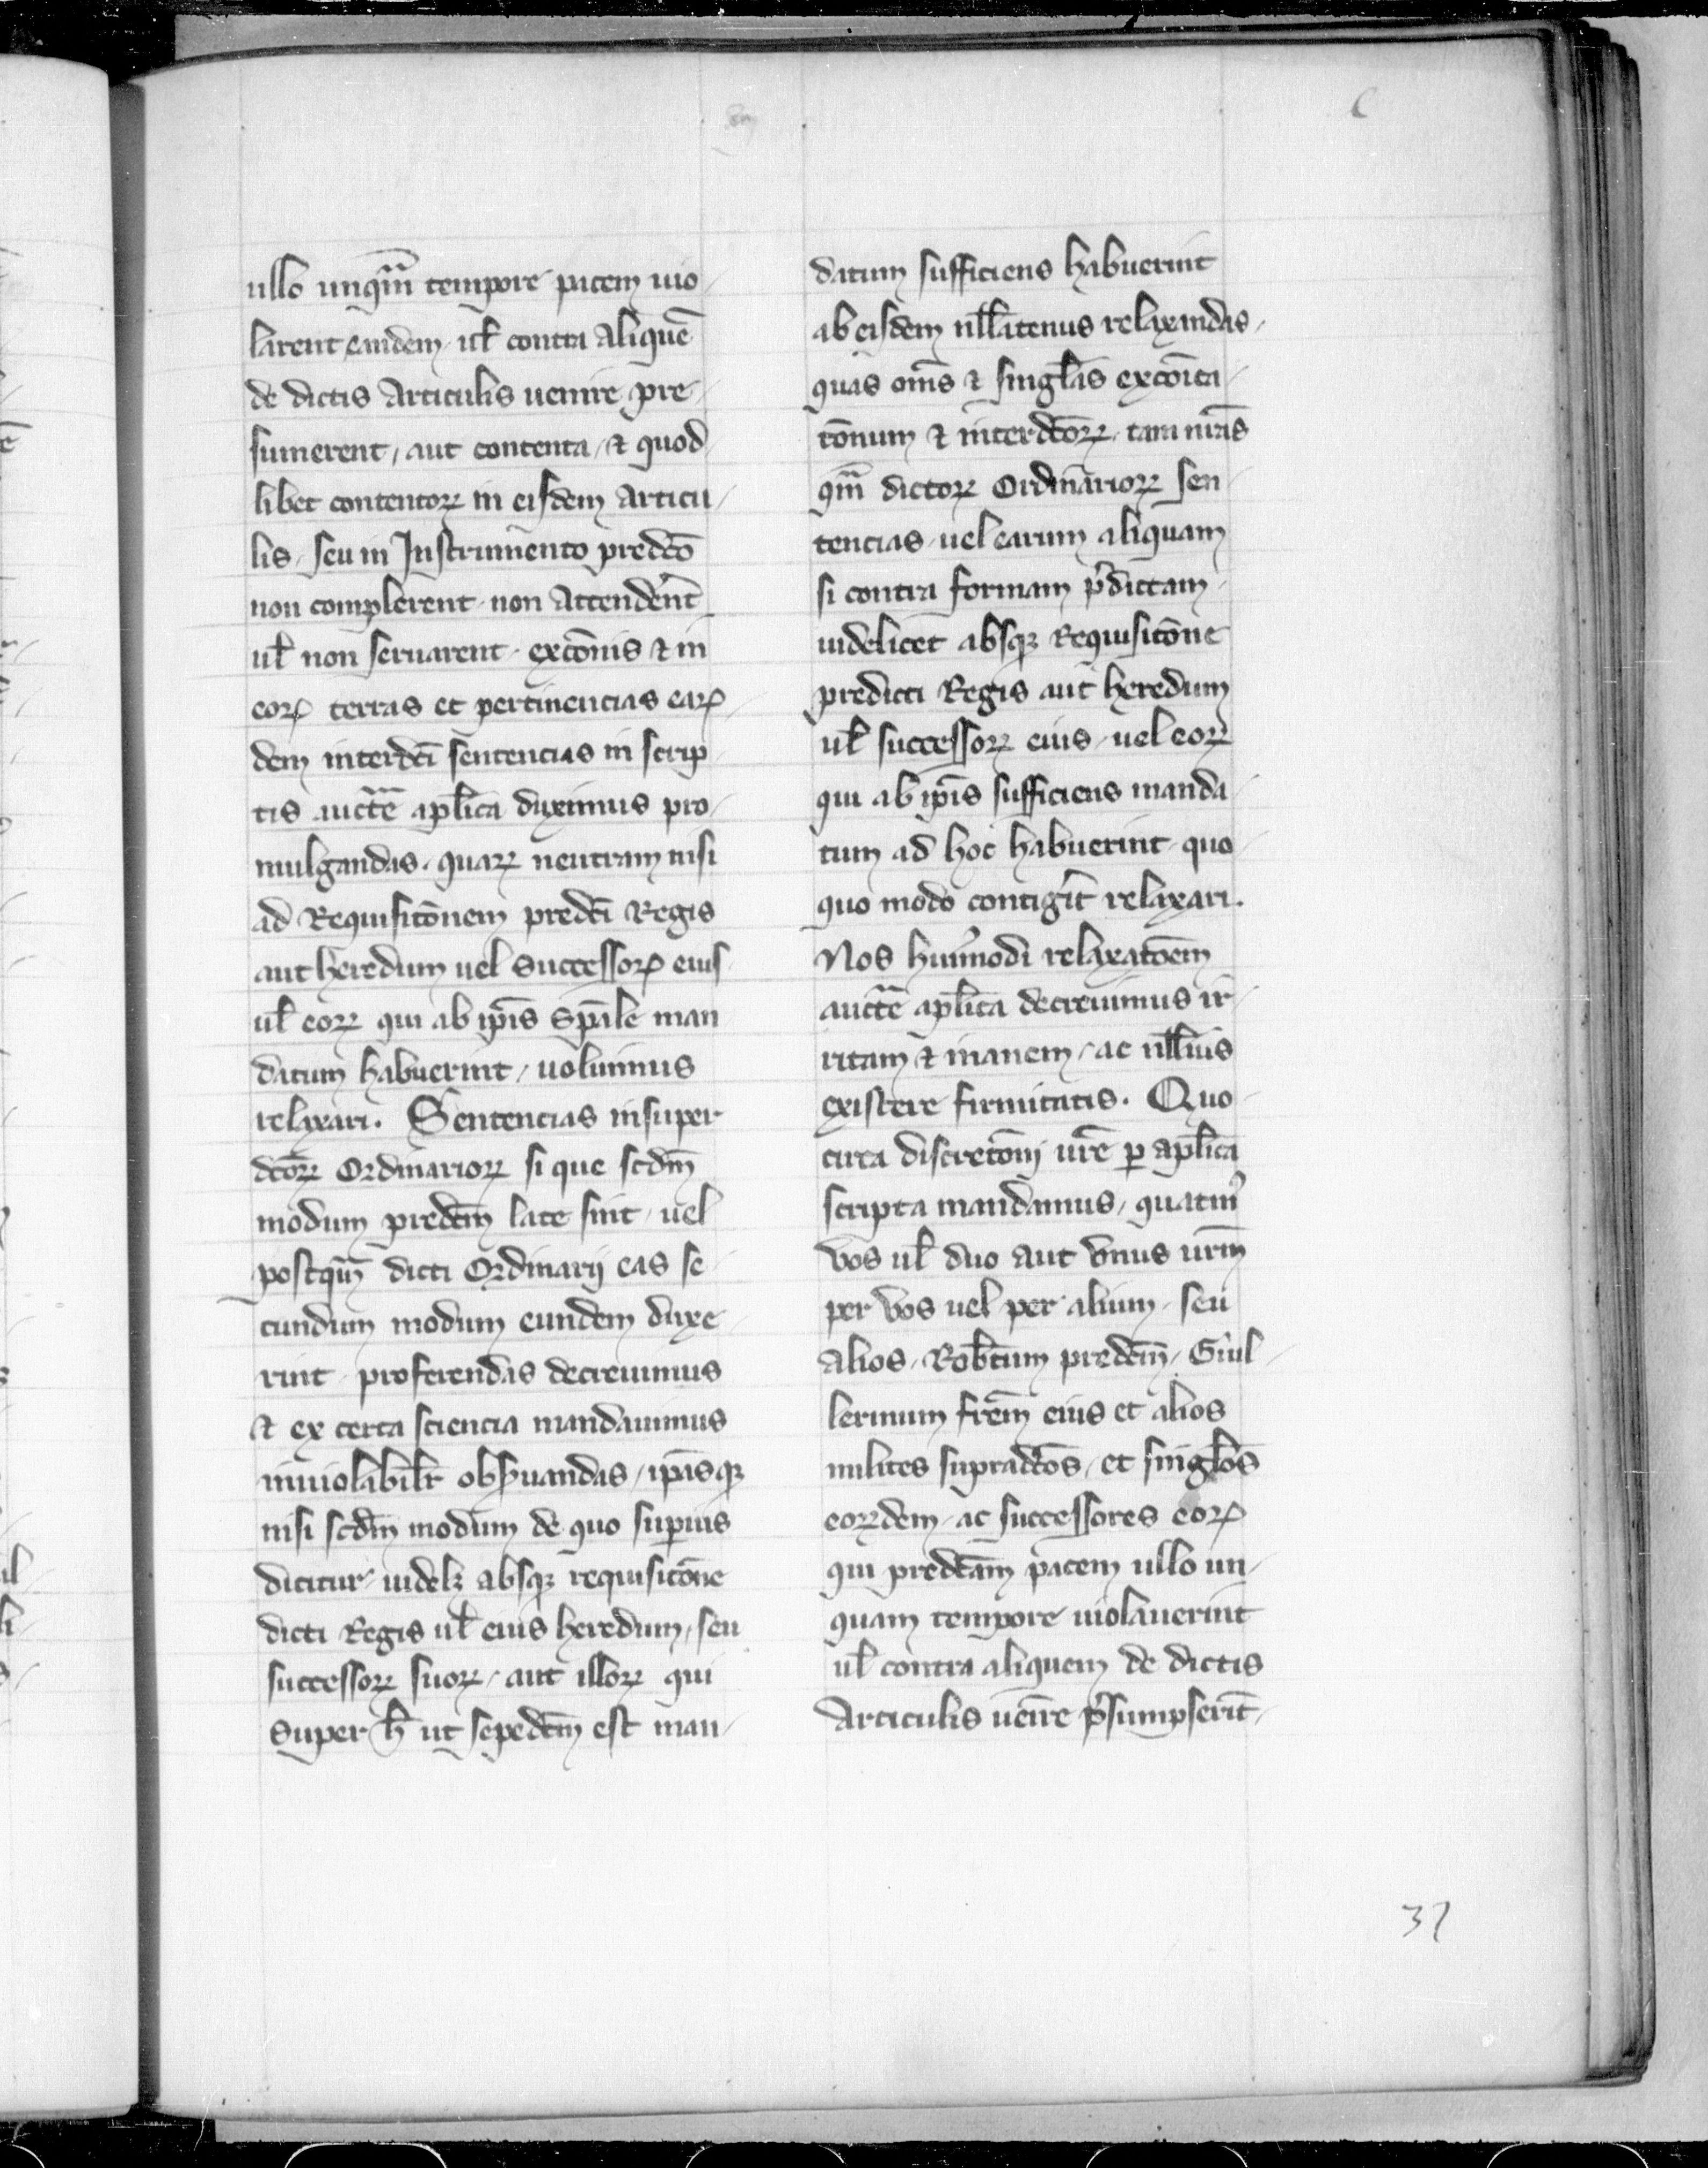 ullo unqm̃ tempore pacem uio
larent eandem, ul̃ contra Aliquē
de dictis Articulis uenire pre
sumerent, aut contenta, ⁊ quod
libet contentoꝝ in eisdem Articu
lis, seu in Instrumento predc̄o
non complerent, non Attender̄t
ul̃ non seruarent, excōīs ⁊ in
eoꝝ terras et pertinencias eaꝝ
dem interdc̄i sentencias in scrip
tis auctẽ apl̄ica duximus pro
mulgandas, quaꝝ neutram nisi
ad Requisitōnem predc̄i Regis
aut heredum uel Successoꝝ eius
ul̃ eoꝝ qui ab ip̄is Sp̄ale man
datum habuerint, uoluimus
relaxari. Sentencias insuper
dc̄oꝝ Ordinarioꝝ si que scdm̄
modum predcm̄ late sint, uel
postqm̄ dicti Ordinarij eas se
cundum modum eundem duxe
rint, proferendas decreuimus
⁊ ex certa sciencia mandauimus
inuiolabilr̄ obẜuandas, ip̄asqꝫ
nisi scdm̄ modum de quo sup̄ius
dicitur, uidelꝫ absqꝫ requisitōne
dicti Regis ul̃ eius heredum, seu
successoꝝ suoꝝ, aut illoꝝ qui
super h̄ ut sepedcm̄ est man
datum sufficiens habuerint
ab eisdem nll̄atenus relaxandas,
quas om̄s ⁊ singl̄as excōīca
tōnum ⁊ interdc̄oꝝ, tam nr̄as
qm̃ dictoꝝ Ordinarioꝝ Sen
tencias, uel earum aliquam
si contra formam p̄dictam,
uidelicet absqꝫ Requisitōne
predicti Regis aut heredum
ul̃ successoꝝ eius, uel eoꝝ
qui ab ip̄is sufficiens manda
tum ad hoc habuerint, quo
quo modo contigr̄it relaxari.
Nos huiꝰmodi relaxatōem
auctẽ apl̄ica decreuimus ir
ritam ⁊ inanem, ac nll̄ius
existere firmitatis. Quo
circa discretōnj ur̄e ꝑ apl̄ica
scripta mandamus, quatinꝰ
Vos ul̃ duo aut Vnus ur̄m
per Vos uel per alium, seu
Alios, Robt̄um predcm̄, Guil
lermum fr̄em eius et alios
milites supradc̄os, et singl̄os
eoꝝdem, ac successores eoꝝ
qui predc̄am pacem ullo un
quam tempore uiolauerint
ul̃ contra aliquem de dictis
Articulis uēire p̄sumpserīt,
37